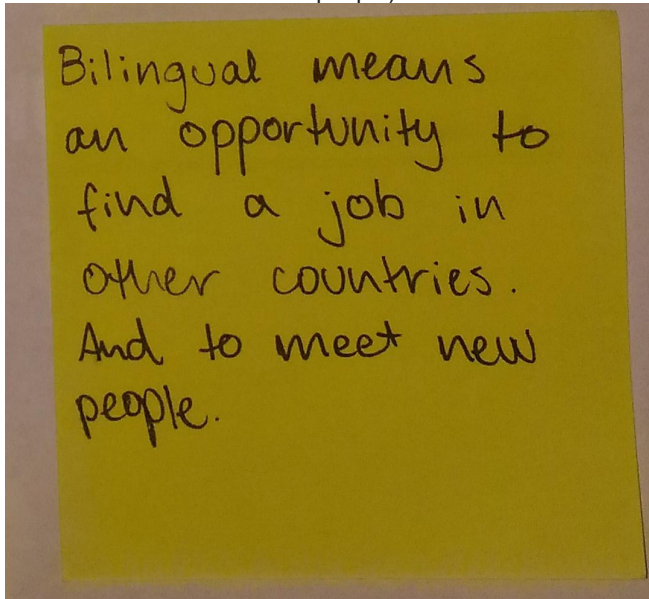 Bilingual means
an opportunity to
find a job in
other countries.
And to meet new
people.